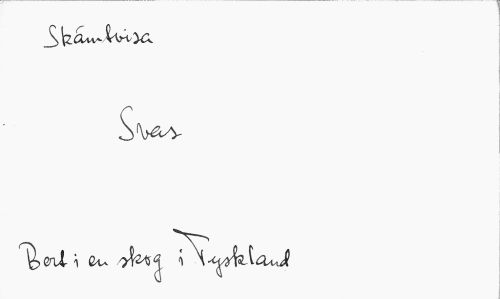 Skämtvisa
Svens
Bort i en skog i Tyskland